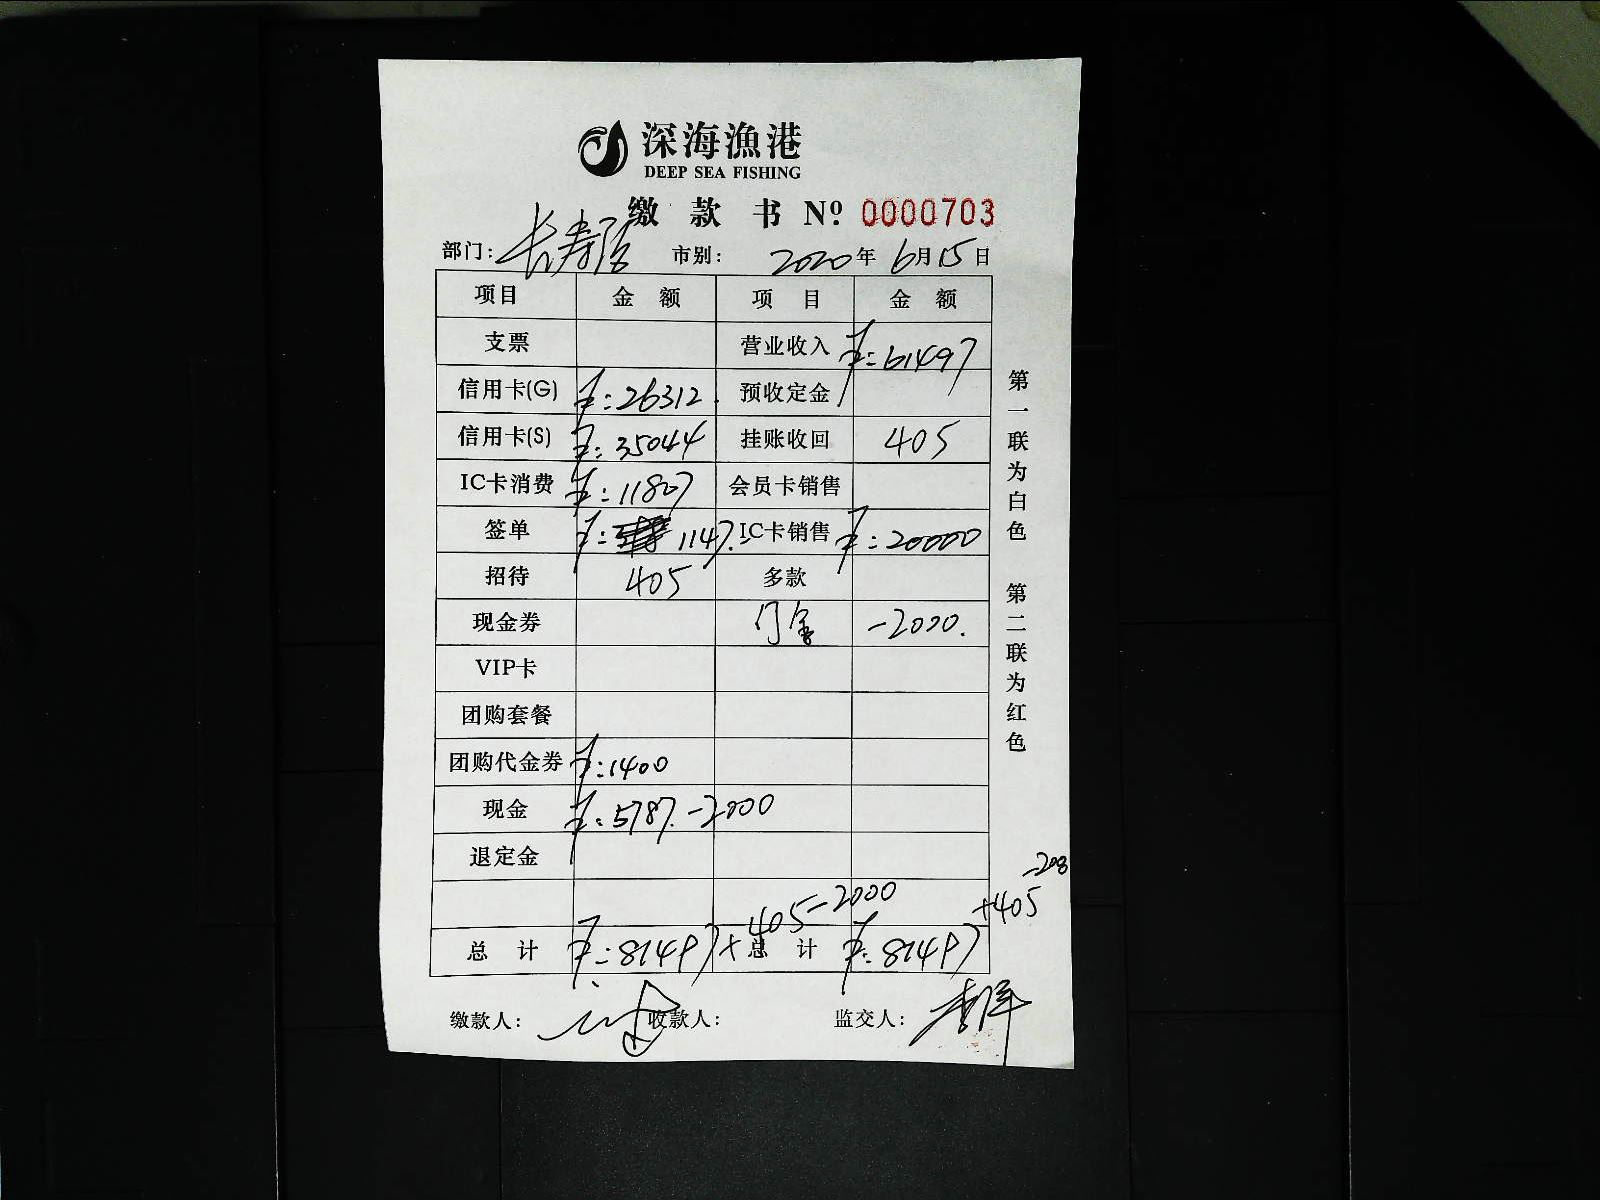 深海漁港
DEEP SEA FISHING
缴 款 书 Nº 0000703
部门: 长寿店 市别: 2020年 6月15日
项目 金 额 项 目 金 额
支票 营业收入 ¥:61497
信用卡(G) ¥:26312. 预收定金
信用卡(S) ¥:35044 挂账收回 405
IC卡消费 ¥:11807 会员卡销售
签单 ¥: 1147. IC卡销售 ¥:20000
招待 405 多款
现金券 -2000.
VIP卡
团购套餐
团购代金券 ¥:1400
现金 ¥:5787.-2000
退定金
+405
总 计 ¥:81497+405-2000 总 计 ¥:81497
缴款人: 收款人: 监交人:
第一联为白色 第二联为红色